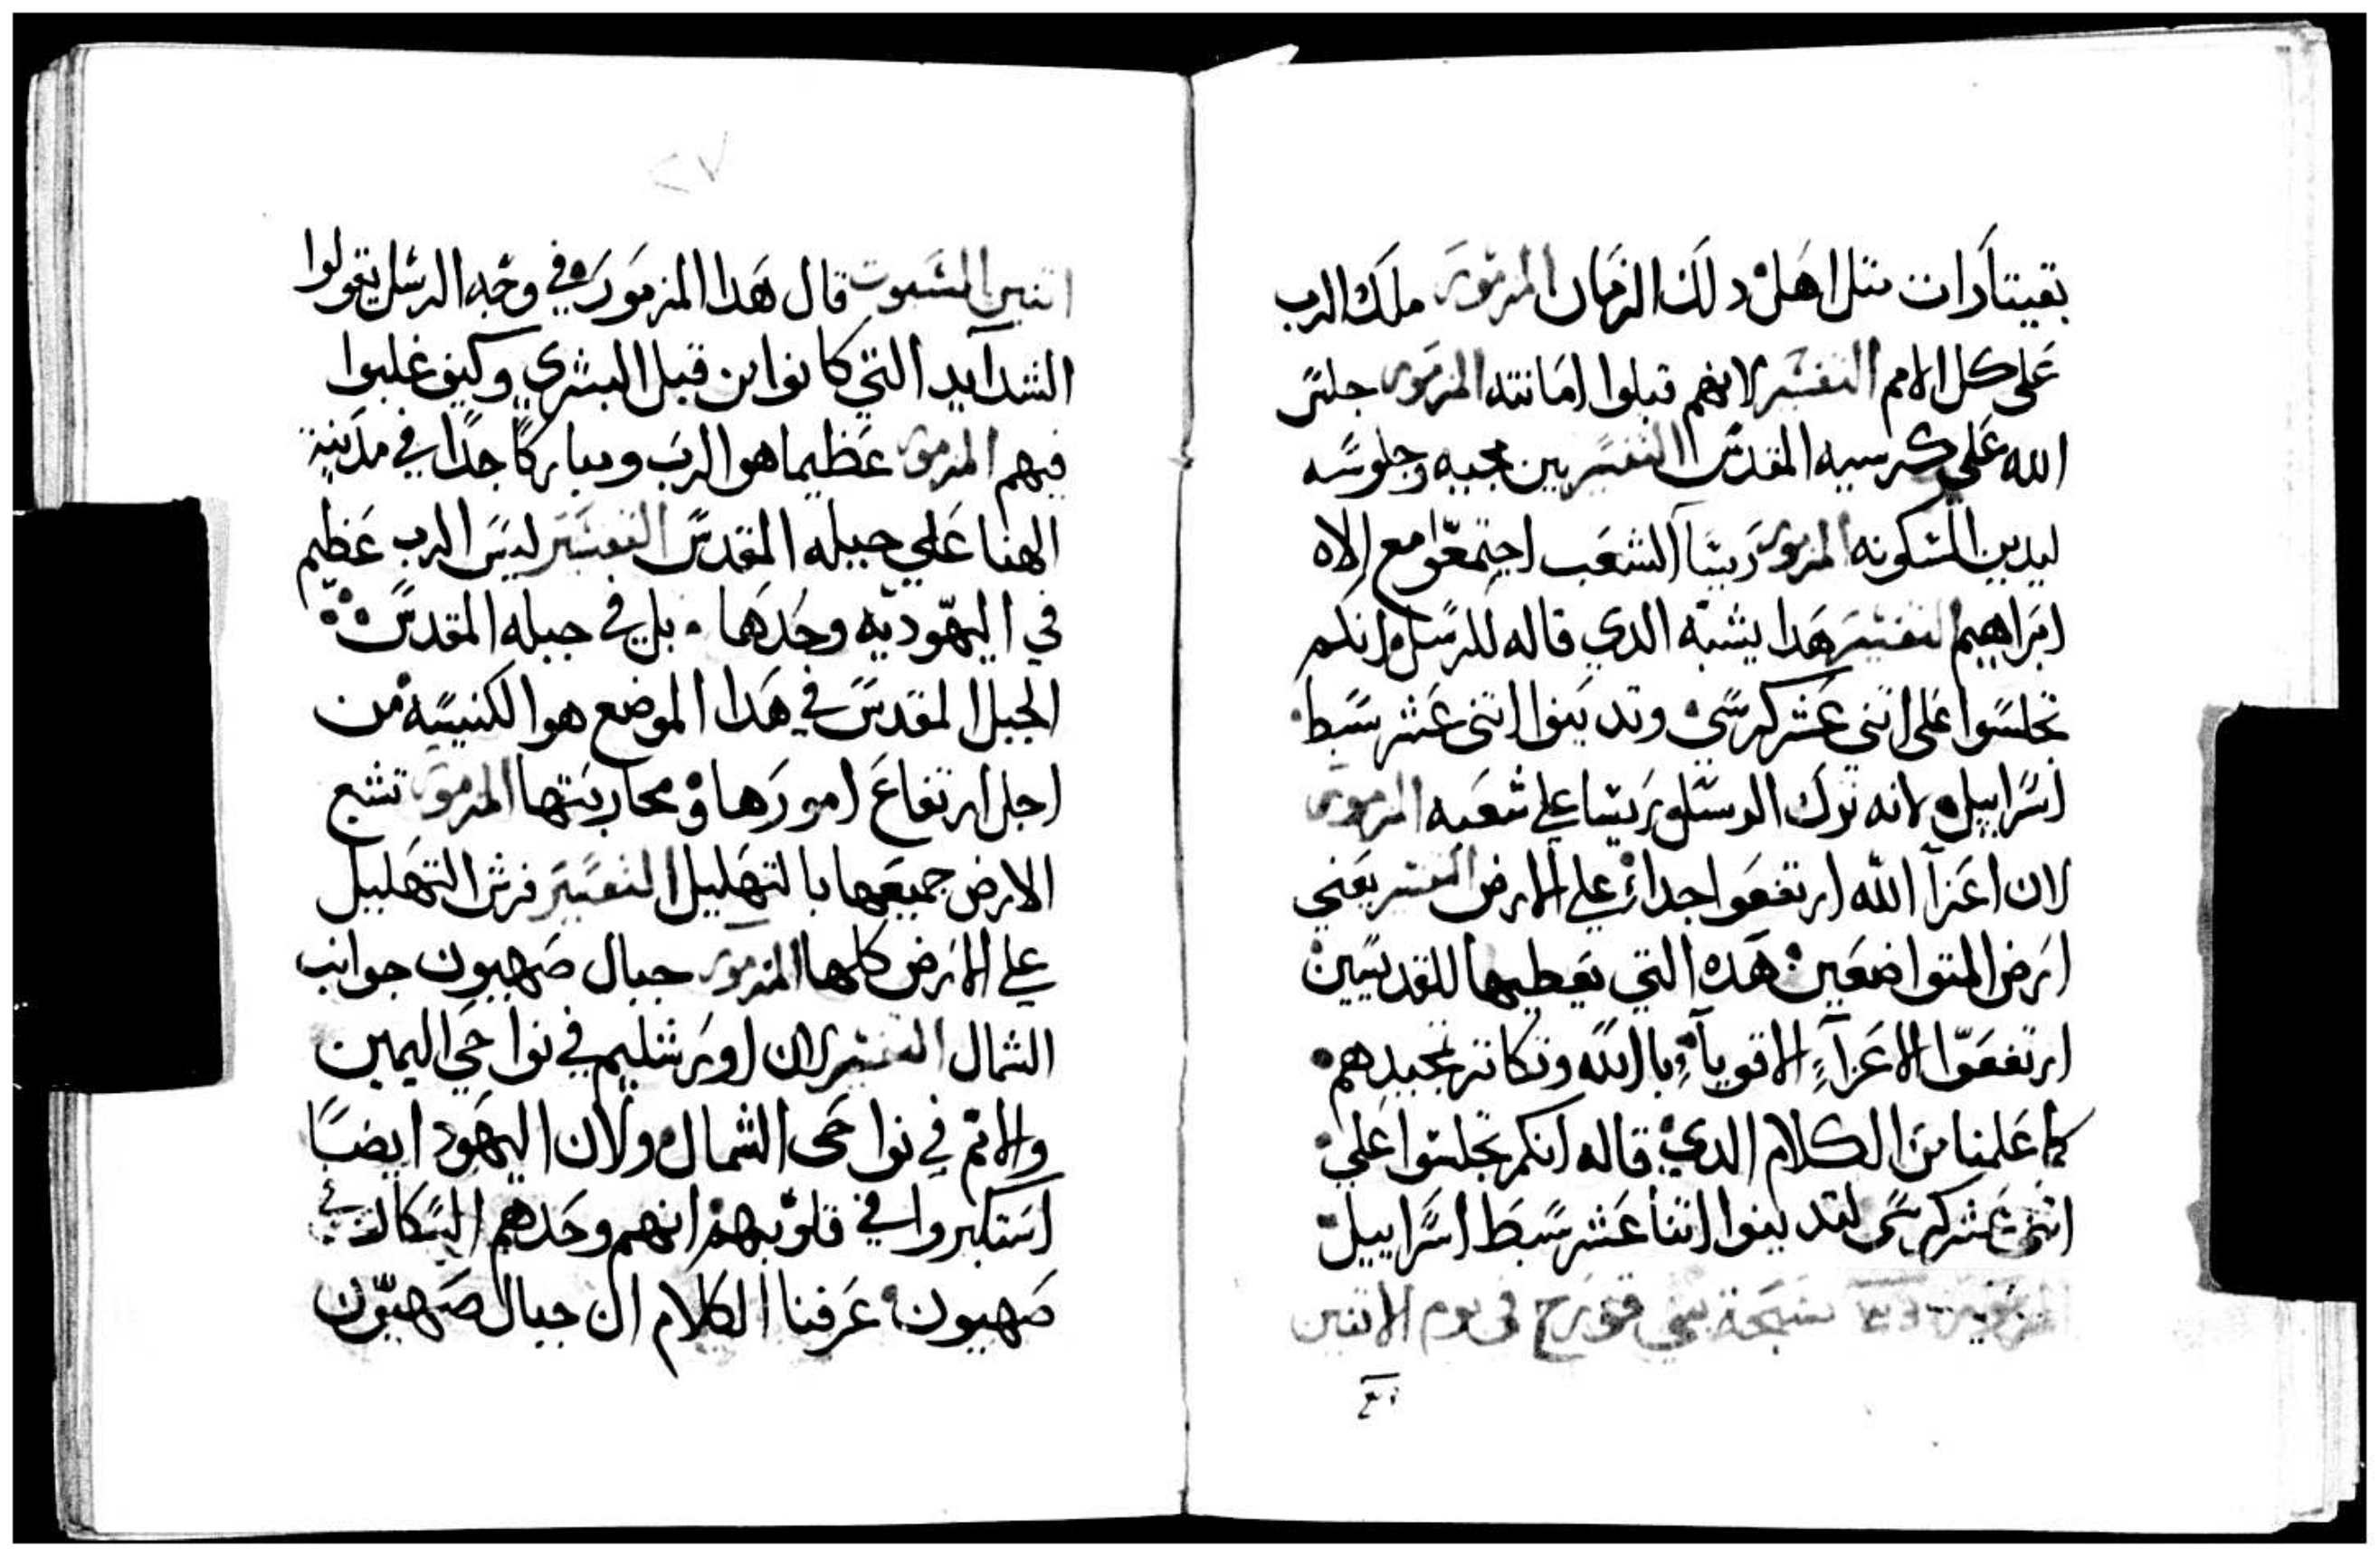 بقيتارات مثل اهل دلك الزمان المزمور ملك الرب
على كل الامم التفسير لانهم قبلوا امانته المزمور جلس
الله على كرسيه المقدس التفسير بين مجيه وجلوسه
ليدين المسكونه المزمور ريسا الشعب اجتمعوا مع الاه
ابراهيم التفسير هدا يشبه الدي قاله للرسل انكم
تجلسوا على اتنى عشر كرسي وتدينوا اتنى عشر سبط
اسراييل لانه ترك الرسل وريسا على شعبه المزمور
لان اعزآ الله ارتفعوا جدا على الارض التفسير يعني
ارض المتواضعين هده التي يعطيها للقديسين
ارتفعوا الاعزآء الاقويآء بالله وتكاتر تمجيدهم
كما علمنا من الكلام الدي قاله انكم تجلسوا علي
اتنى عشر كرسى لتدينوا اتنا عشر سبط اسراييل
المزمور تسبحة بني قورح في يوم الاتنين
٢٧
اتنين السبوت قال هدا المزمور في وجه الرسل يقولوا
الشدآيد التي كانوا من قبل البشري وكيف غلبوا
فيهم المزمور عظيما هو الرب ومباركا جدا في مدينة
الهنا علي جبله المقدس التفسير ليس الرب عظيم
في اليهوديه وحدها بل في جبله المقدس
الجبل المقدس في هدا الموضع هو الكنيسه من
اجل ارتفاع امورها ومحاربتها المزمور تشبع
الارض جميعها بالتهليل التفسير فرش التهليل
علي الارض كلها المزمور جبال صهيون جوانب
الشمال التفسير لان اورشليم في نواحي اليمين
والامم في نواحى الشمال ولان اليهود ايضا
استكبروا في قلوبهم انهم وحدهم السكان في
صهيون عرفنا الكلام ان جبال صهيون